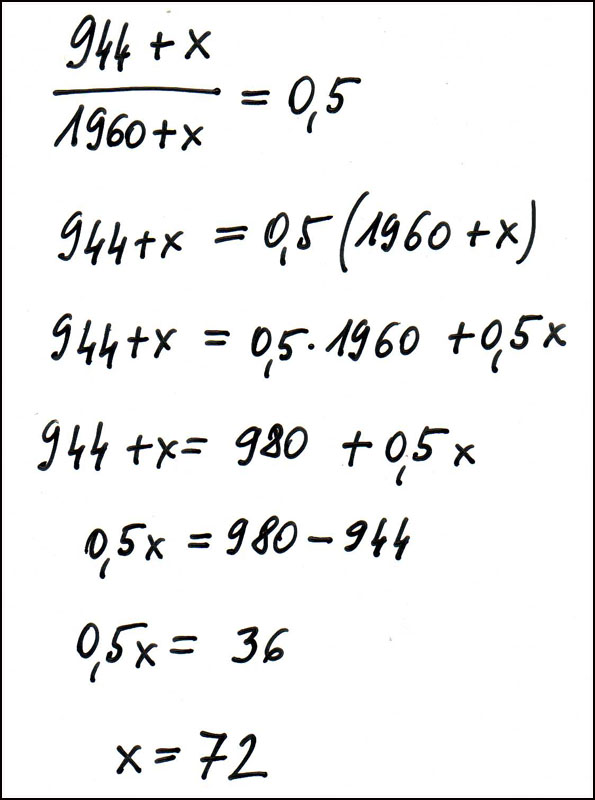 944 + x
1960 + x = 0,5
944 + x = 0,5 (1960 + x)
944 + x = 0,5 · 1960 + 0,5 x
944 + x = 980 + 0,5 x
0,5 x = 980 - 944
0,5 x = 36
x = 72